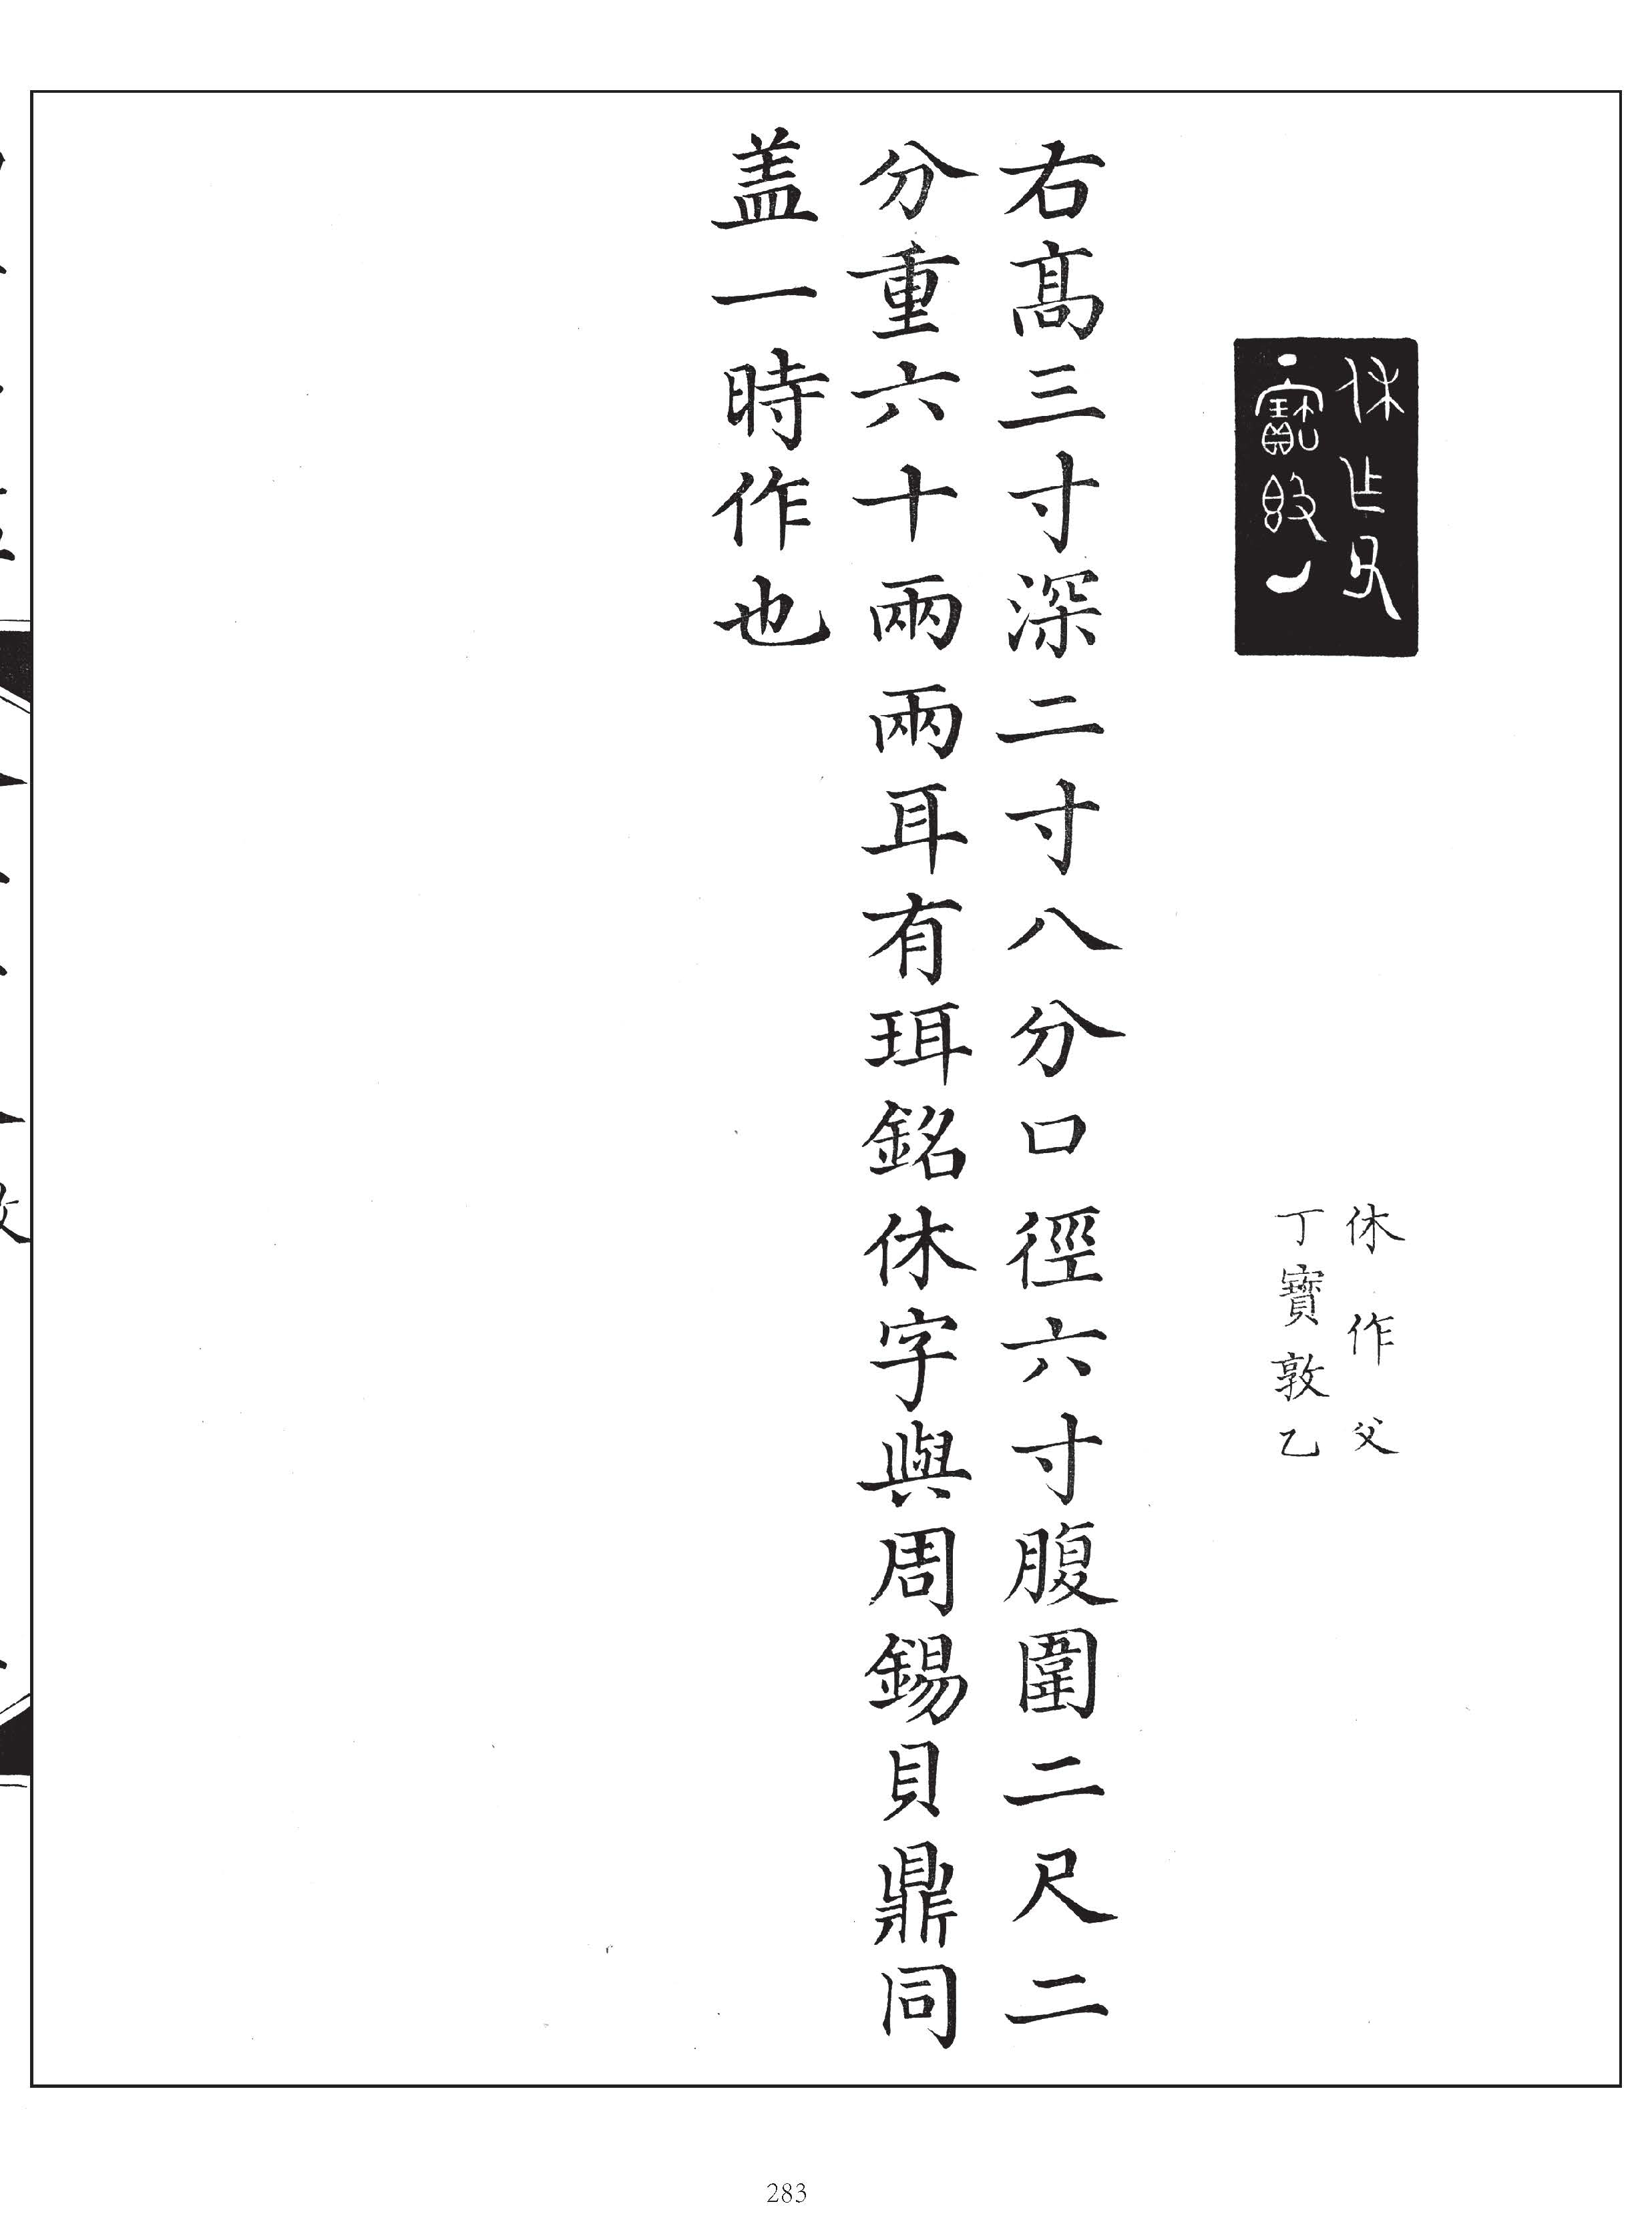 休作父
丁寶敦乙
右高三寸深二寸八分口徑六寸腹圍二尺二
分重六十兩兩耳有珥銘休字與周錫貝鼎同
盖一時作也
283